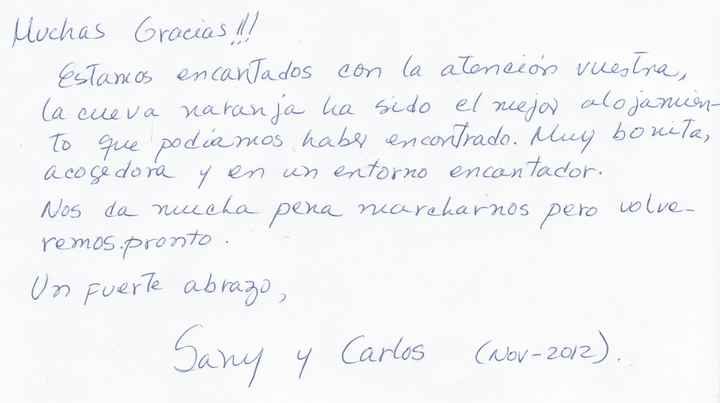 Muchas Gracias!!!
Estamos encantados con la atención vuestra,
la cueva naranja ha sido el mejor alojamien-
to que podíamos haber encontrado. Muy bonita,
acogedora y en un entorno encantador.
Nos da mucha pena marcharnos pero volve-
remos pronto.
Un fuerte abrazo,
Sany y Carlos (Nov-2012).